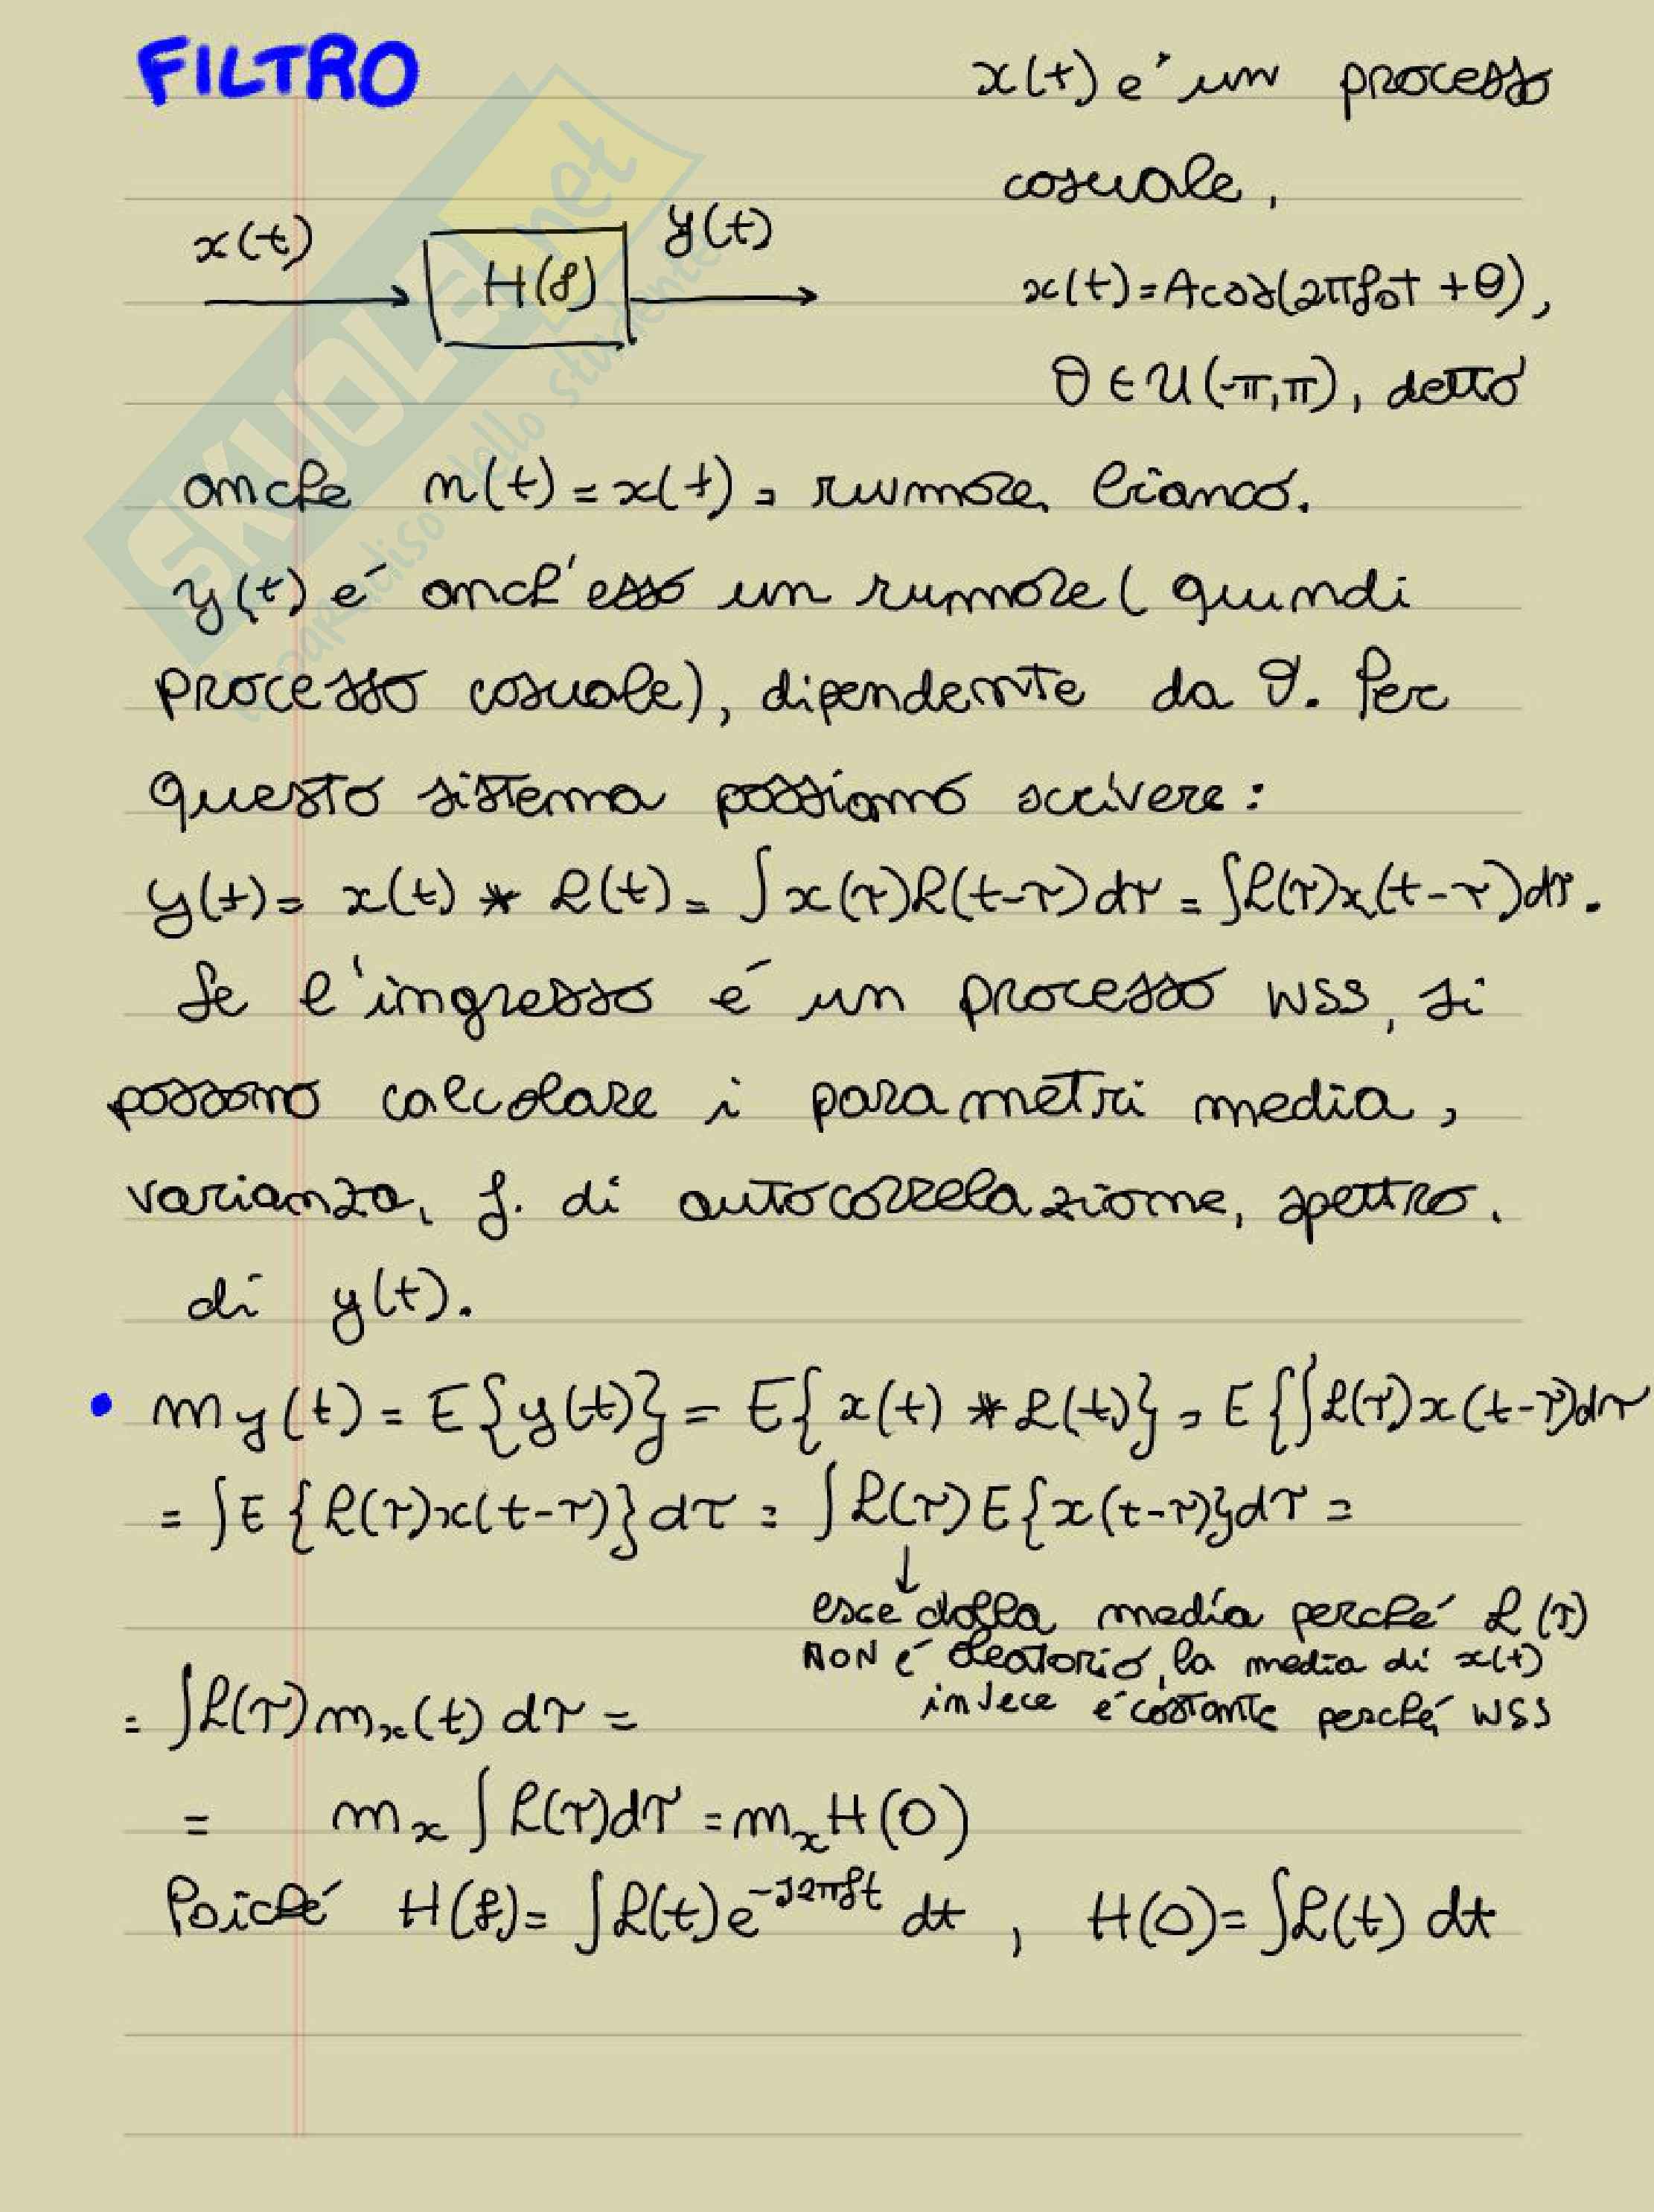 FILTRO
x(t) e' un processo
casuale,
x(t) y(t)
H(f)
x(t)=Acos(2πf₀t +θ),
θ ∈ U (-π,π), detto
anche n(t) = x(t) = rumore bianco.
y(t) é anch'esso un rumore ( quindi
processo casuale), dipendente da ϑ. Per
questo sistema possiamo scrivere:
y(t)= x(t) * h(t) = ∫x(τ)h(t-τ)dτ = ∫h(τ)x(t-τ)dτ.
Se l'ingresso é un processo WSS, si
possono calcolare i parametri media,
varianza, f. di autocorrelazione, spettro.
di y(t).
• my(t) = E{y(t)} = E{x(t) * h(t)} = E{∫h(τ)x(t-τ)dτ
= ∫E{h(τ)x(t-τ)}dτ = ∫h(τ)E{x(t-τ)}dτ =
↓
esce dalla media perché h(τ)
NON é aleatorio, la media di x(t)
invece é costante perché WSS
= ∫h(τ)mₓ(t)dτ =
= mₓ∫h(τ)dτ = mₓH(0)
Poiché H(f)= ∫h(t)e^-j2πft dt , H(0)= ∫h(t) dt
SKUOLA.net
il paradiso dello studente